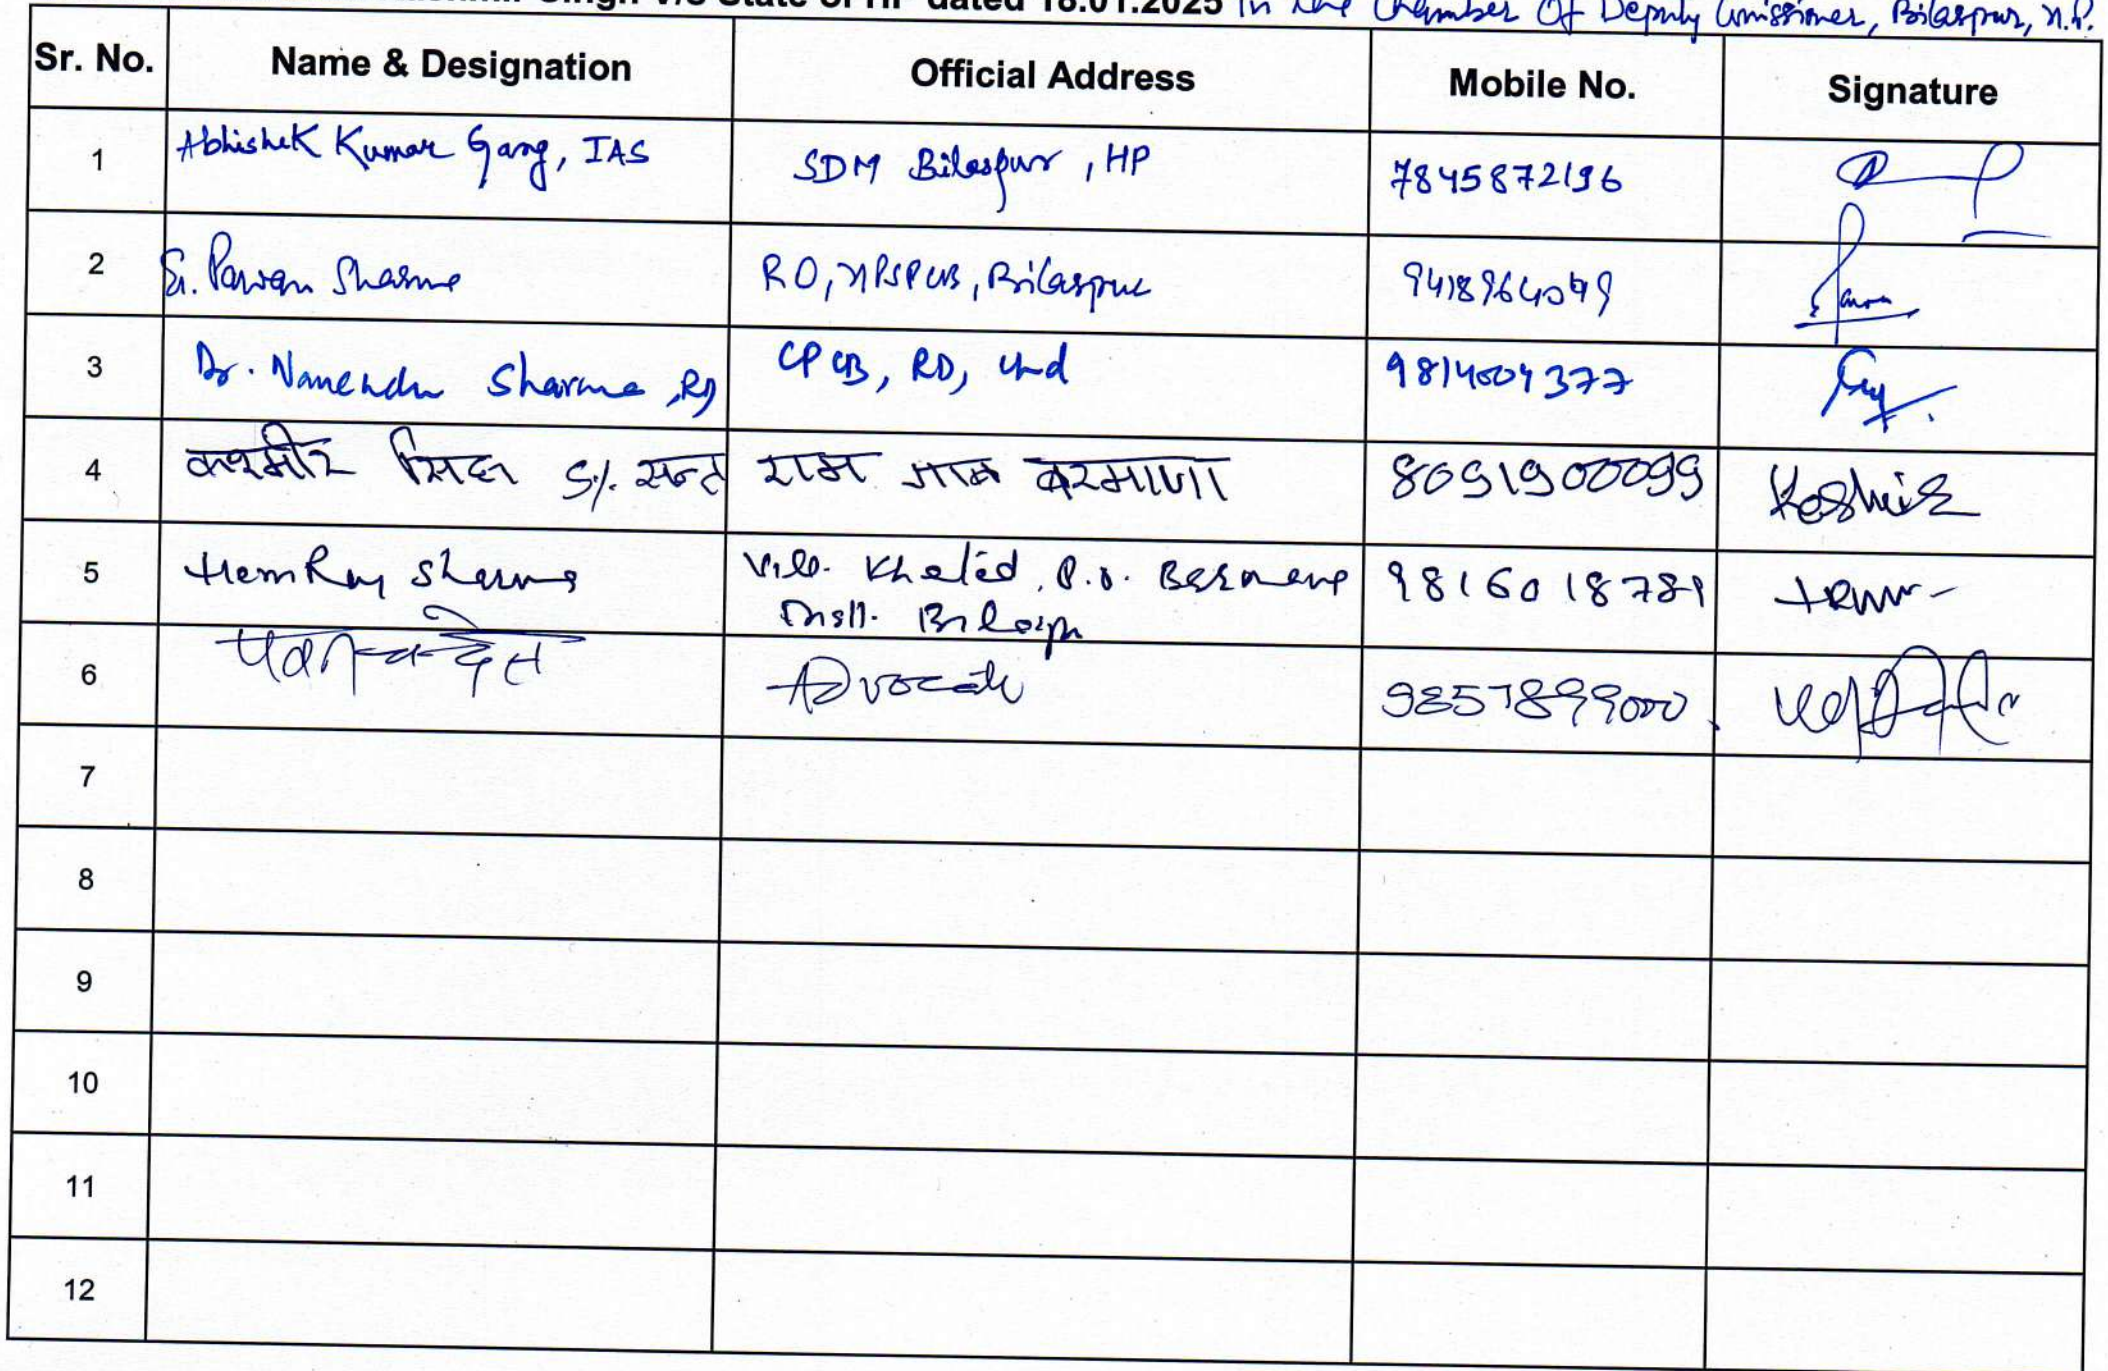 Singh V/s State of HP dated 18.01.2025 in the Chamber Of Deputy Commissioner, Bilaspur, H.P.
Sr. No. Name & Designation Official Address Mobile No. Signature
1 Abhishek Kumar Garg, IAS SDM Bilaspur, HP 7845872196
2 Er. Pawan Sharma RO, HPSPCB, Bilaspur 9418964049
3 Dr. Narender Sharma, RD CPCB, RD, Chd 9814004377
4 कश्मीर सिंह S/. सन्त राम गांव बरमाणा 8091900099 Kashmir
5 Hem Raj Sharma Vill. Khatéd, P.O. Barmana 9816018789
Distt. Bilasp
6 Advocate 9857899000
7
8
9
10
11
12